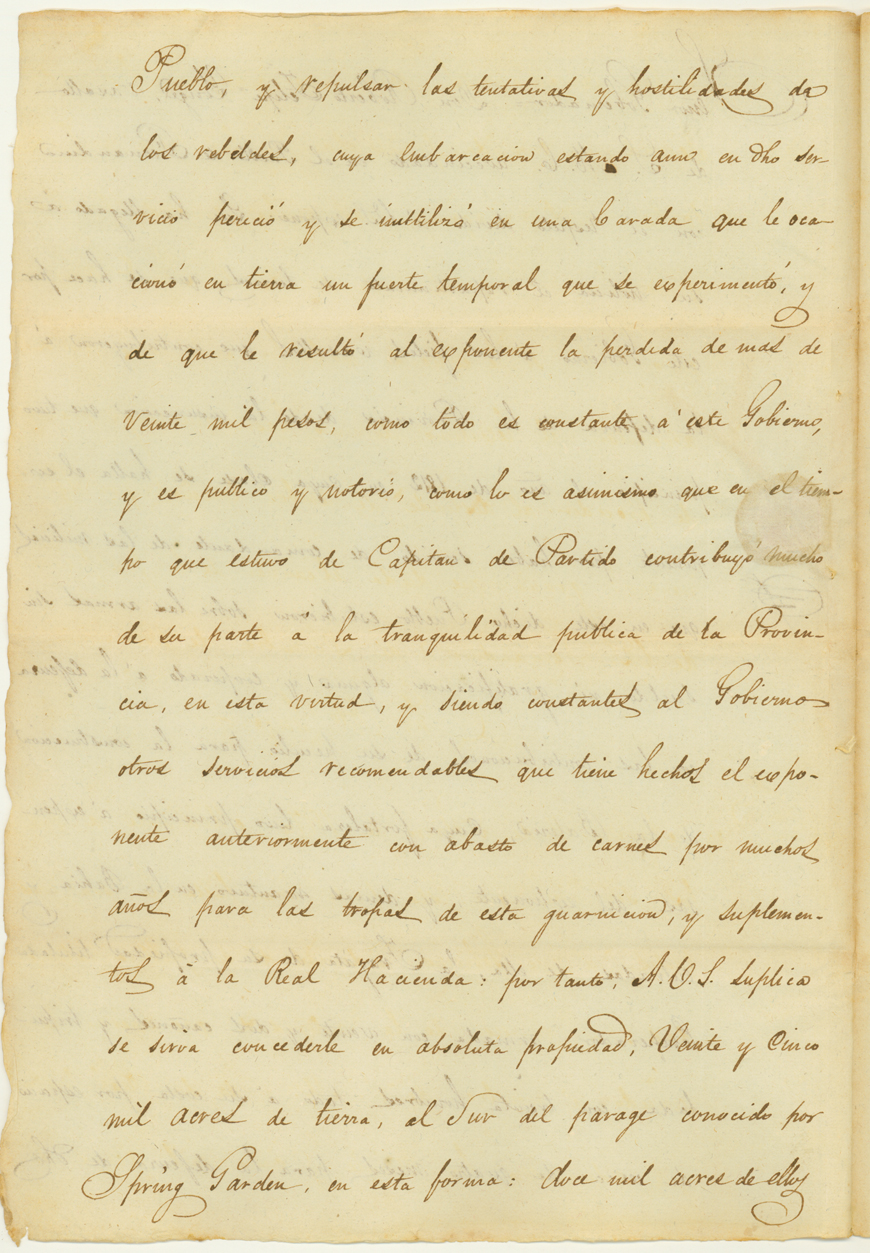 Pueblo, y repulsar las tentativas y hostilidades de
los rebeldes, cuya embarcacion estando aun en dho ser-
vicio pereció y se inutilizó en una barada que le oca-
cionó en tierra un fuerte temporal que se experimentó, y
de que le resultó al exponente la perdida de mas de
veinte mil pesos, como todo es constante á este Gobierno,
y es publico y notorio, como lo es asimismo que en el tiem-
po que estuvo de Capitan de Partido contribuyó mucho
de su parte á la tranquilidad publica de la Provin-
cia, en esta virtud, y siendo constantes al Gobierno
otros servicios recomendables que tiene hechos el expo-
nente anteriormente con abasto de carnes por muchos
años para las tropas de esta guarnicion, y suplemen-
tos à la Real Hacienda: por tanto, A.V.S. suplica
se sirva concederle en absoluta propiedad, Veinte y Cinco
mil acres de tierra, al Sur del parage conocido por
Spring Garden, en esta forma: doce mil acres de ellos